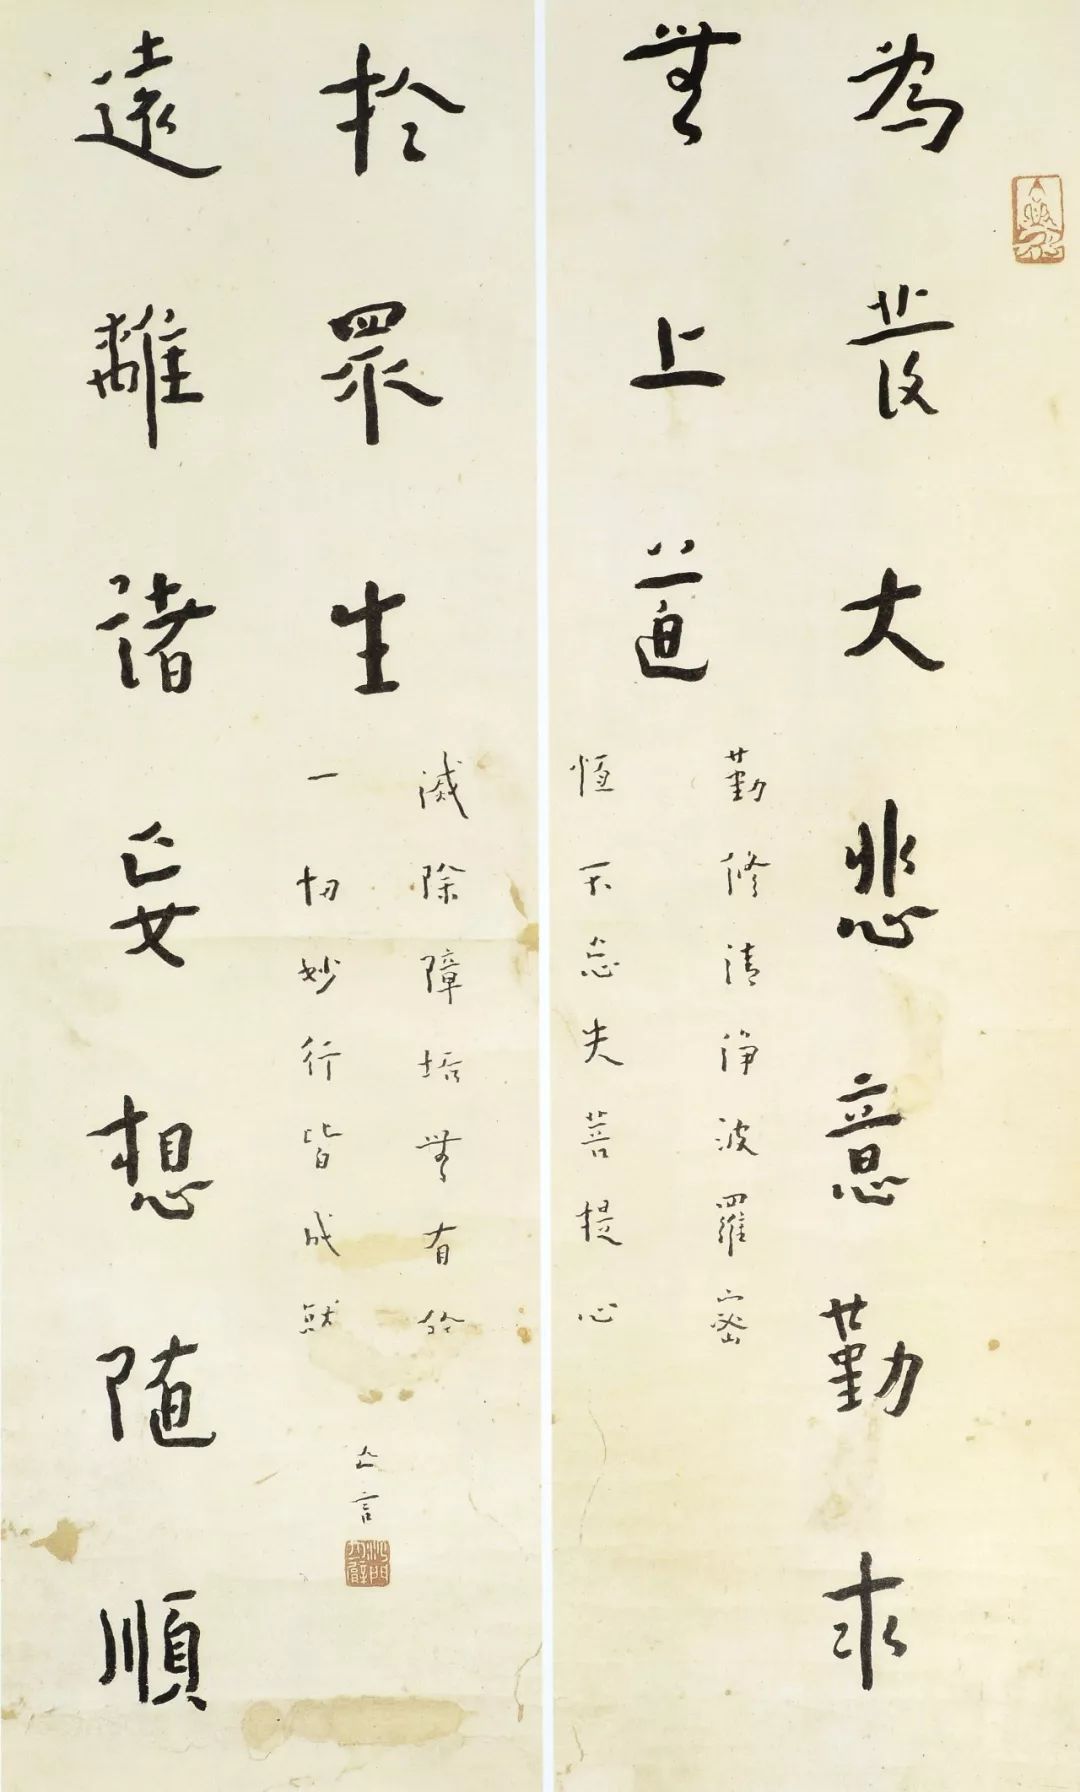 為發大悲意勤求
無上道
勤修清淨波羅密
恆不忘失菩提心
遠離諸妄想隨順
於眾生
滅除障垢無有餘
一切妙行皆成就
亡言
沙門月臂